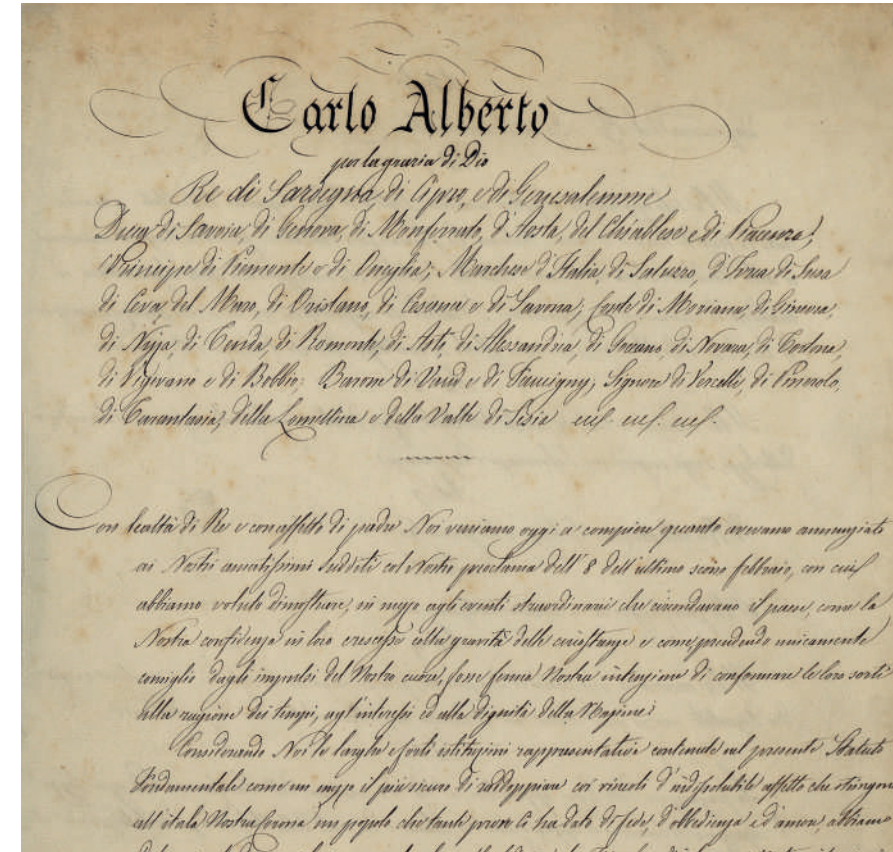 Carlo Alberto
per la grazia di Dio
Re di Sardegna, di Cipro, e di Gerusalemme
Duca di Savoia, di Genova, di Monferrato, d'Aosta, del Chiablese e di Piacenza;
Principe di Piemonte e di Oneglia; Marchese d'Italia, di Saluzzo, d'Ivrea, di Susa
di Ceva, del Maro, di Oristano, di Cesana e di Savona; Conte di Moriana, di Ginevra,
di Nizza, di Tenda, di Romonte, di Asti, di Alessandria, di Goceano, di Novara, di Tortona,
di Vigevano e di Bobbio; Barone di Vaud e di Faucigny; Signore di Vercelli, di Pinerolo,
di Tarantasia, della Lomellina e della Valle di Sesia ecc. ecc. ecc.
Con lealtà di Re e con affetto di padre Noi veniamo oggi a compiere quanto avevamo annunziato
ai Nostri amatissimi sudditi col Nostro proclama dell' 8 dell'ultimo scorso febbraio, con cui
abbiamo voluto dimostrare, in mezzo agli eventi straordinarii che circondavano il paese, come la
Nostra confidenza in loro crescesse colla gravità delle circostanze e come prendendo unicamente
consiglio dagli impulsi del Nostro cuore, fosse ferma Nostra intenzione di conformare le loro sorti
alla ragione dei tempi, agl'interessi ed alla dignità della Nazione.
Considerando Noi le larghe e forti istituzioni rappresentative contenute nel presente Statuto
Fondamentale come un mezzo il più sicuro di raddoppiare coi vincoli d'indissolubile affetto che stringono
all'itala Nostra Corona un popolo che tante prove Ci ha dato di fede, d'obbedienza e d'amore, abbiamo